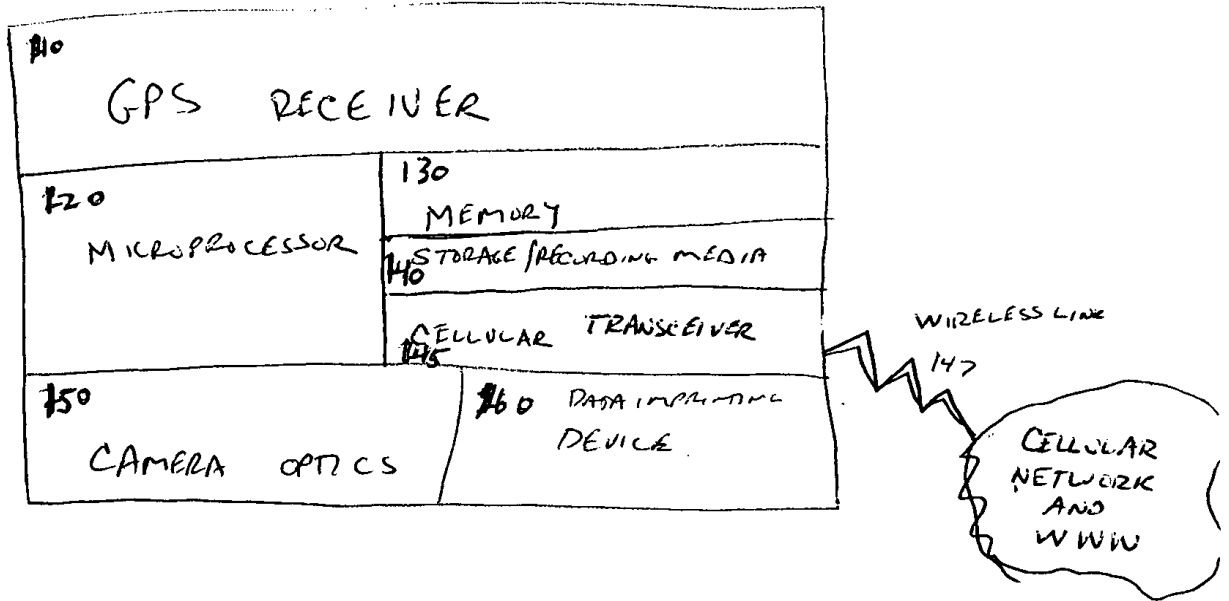 110
GPS RECEIVER
120
MICROPROCESSOR
130
MEMORY
140 STORAGE/RECORDING MEDIA
CELLULAR TRANSCEIVER
145
WIRELESS LINK
147
150
CAMERA OPTICS
160 DATA IMPRINTING
DEVICE
CELLULAR
NETWORK
AND
WWW